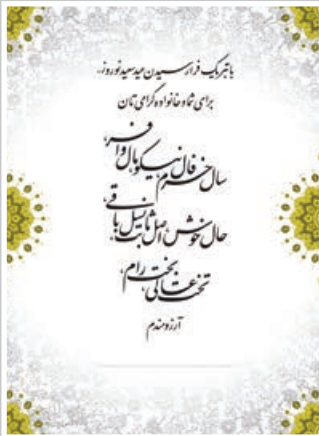 با تبریک فرا رسیدن عید سعید نوروز..
برای شما و خانواده گرامی تان
سال خرم، فال نیکو، مال وافر،
حال خوش، اصل ثابت، نسل باقی،
تخت عالی، بخت رام،
آرزومندم